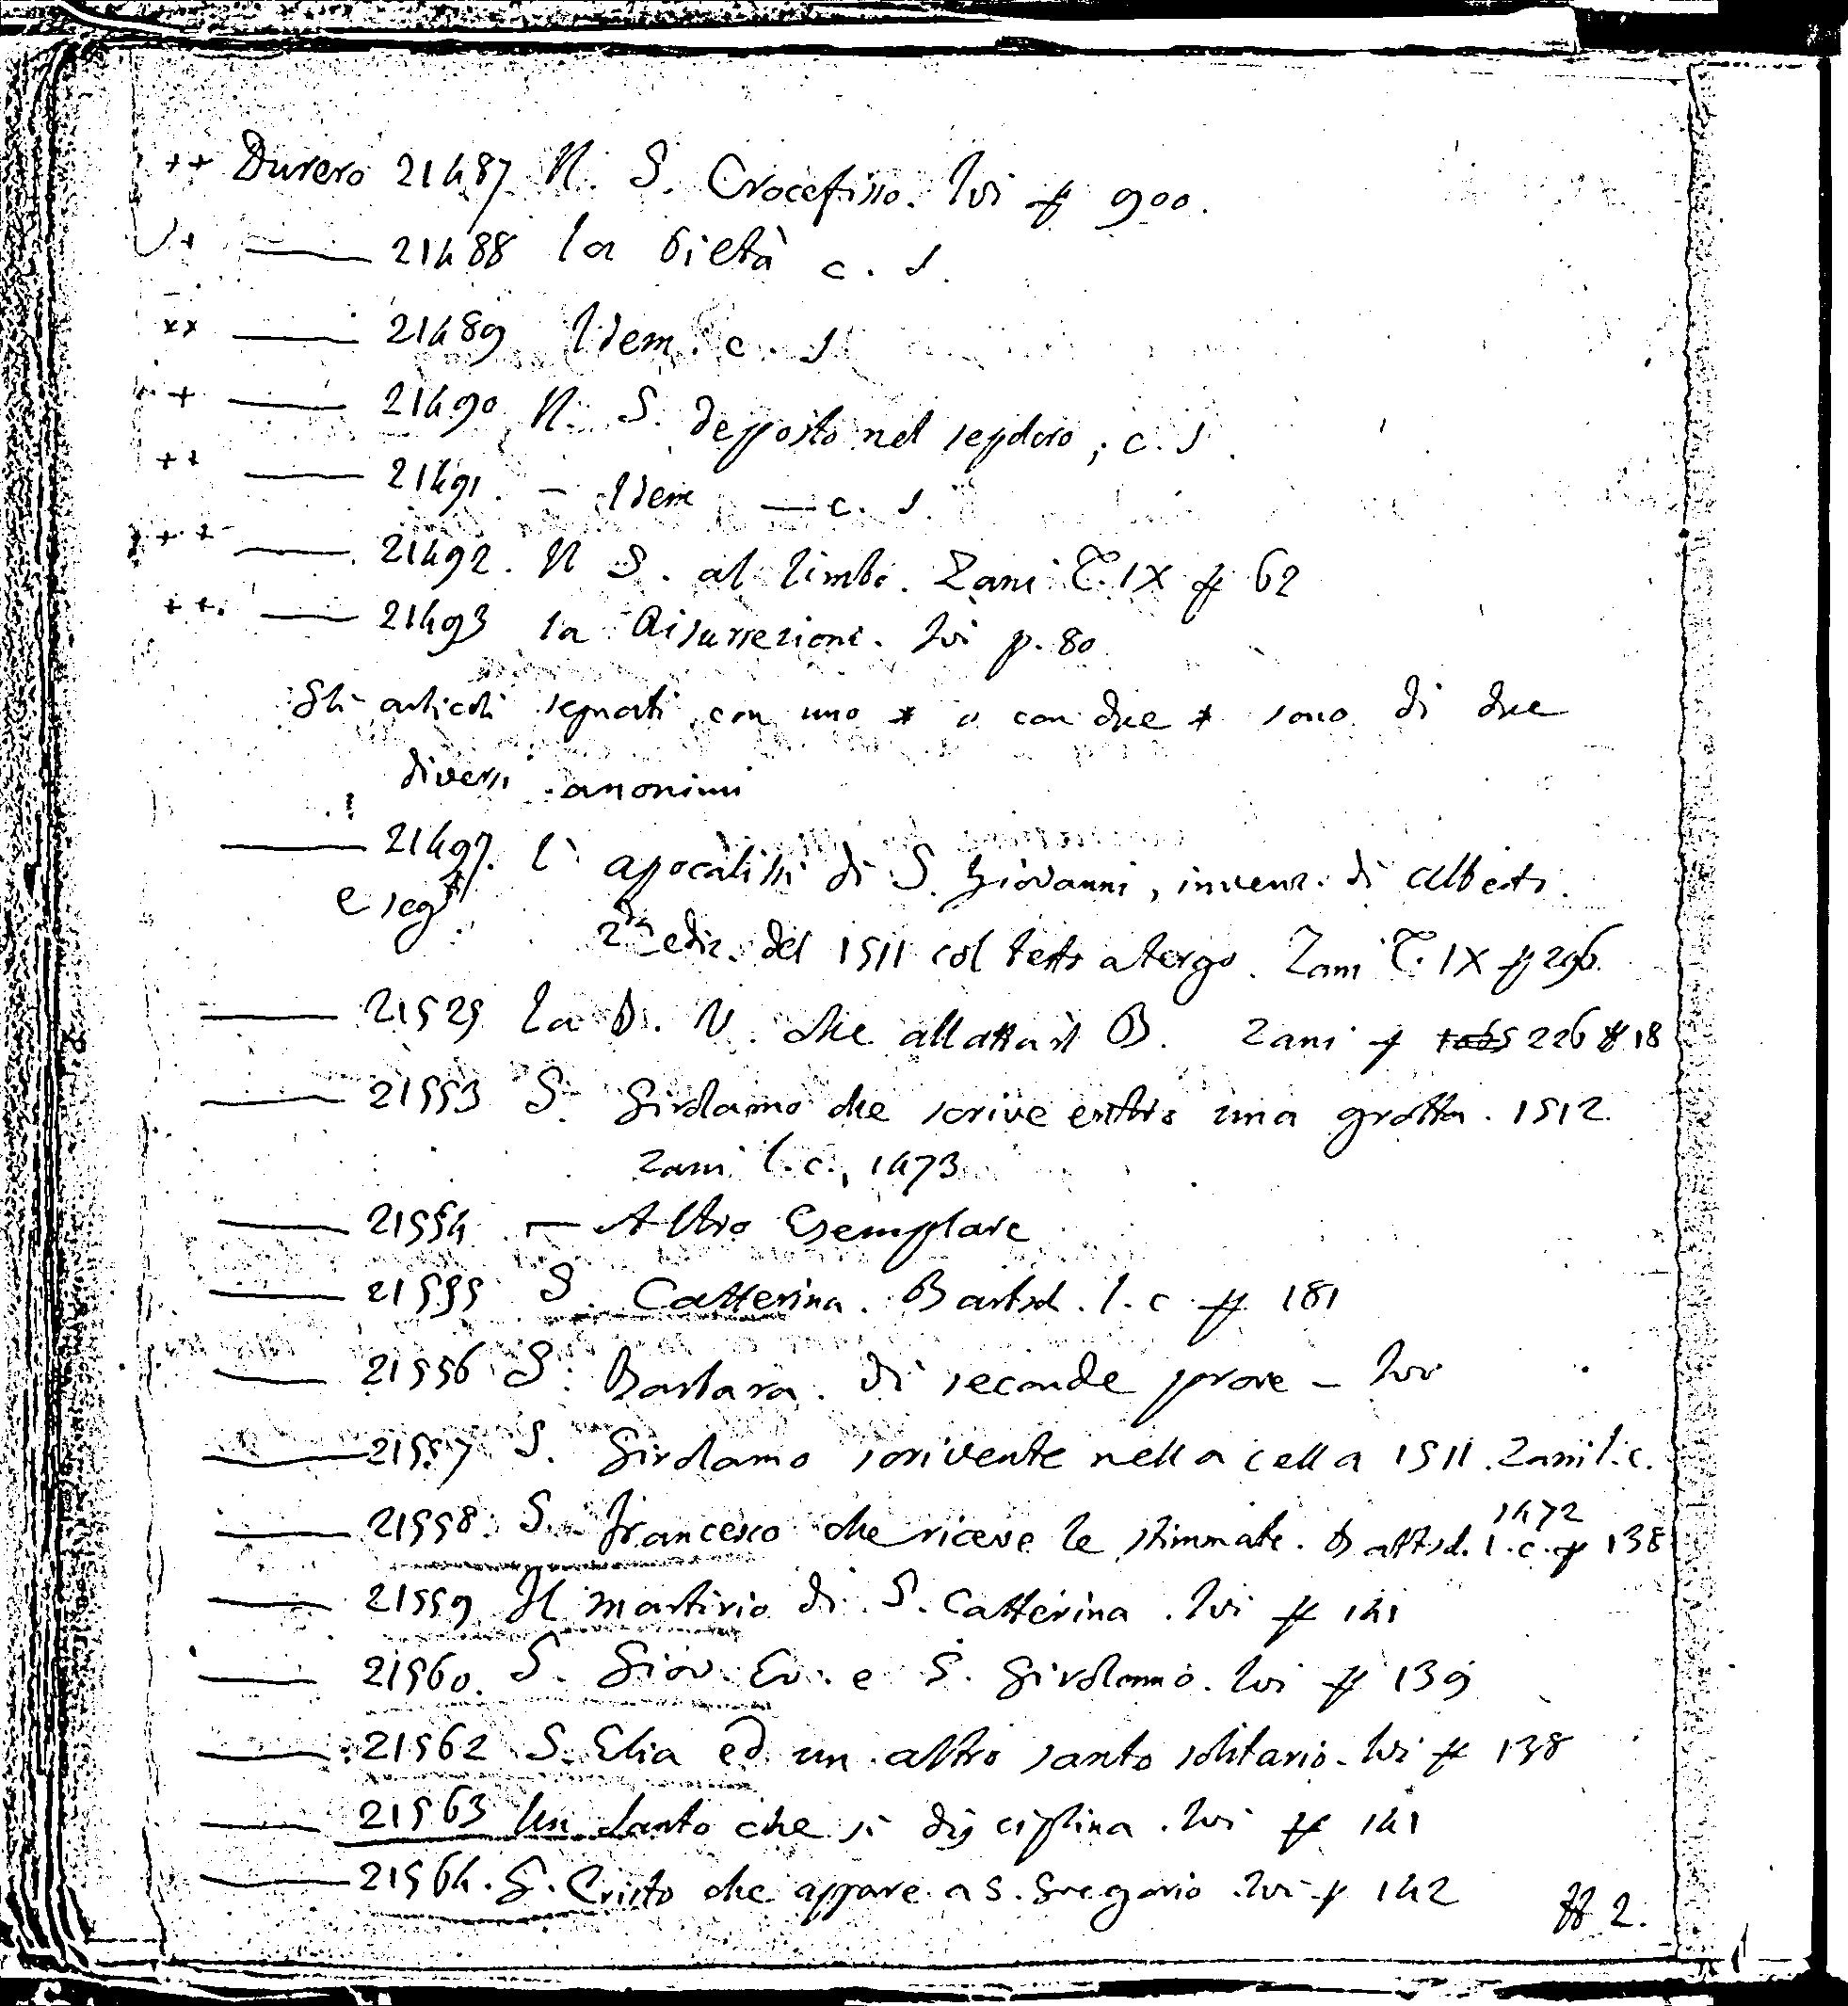 ++ Durero 21487 N. S. Crocefisso. Ivi p 900.
+ —— 21488 La Pietà c. s.
xx —— 21489 Idem. c. s
+ —— 21490 N. S. depposto nel sepolcro, c. s.
++ —— 21491. — Idem — c. s.
++ —— 21492. N S. al Limbo. Zani T. IX p 62
++. —— 21493 La Risurrezione. Ivi p. 80
Gli articoli segnati con uno * o con due * sono di due
diversi anonimi
—— 21497. L'apocalissi di S. Giovanni, invenz. di Alberto.
e seg.ti 2da ediz. del 1511 col testo a tergo. Zani T. IX p 296.
—— 21525 La B. V. che allatta il B. Zani p 226 18
—— 21553 S. Girolamo che scrive entro una grotta. 1512
Zani l. c., 1473
—— 21554 — Altro Esemplare
—— 21555 S. Catterina. Bartsch. l. c p 181
—— 21556 S. Barbara. di seconde prove — Ivi
—— 21557 S. Girolamo scrivente nella cella 1511. Zani l. c.
1472
—— 21558. S. Francesco che riceve le stimmate. Bartsch. l. c. p 138
—— 21559 Il martirio di S. Catterina. Ivi p 141
—— 21560. S. Giov. Ev. e S. Girolamo. Ivi p 139
—— 21562 S. Elia ed un altro santo solitario. Ivi p 138
—— 21563 Un Santo che si disciplina. Ivi p 141
—— 21564. G. Cristo che appare a S. Gregorio. Ivi p 142
2.